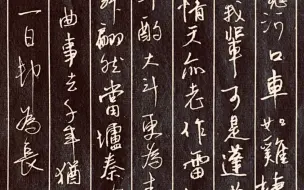 河口車如雞棲
我輩可是蓬
情天亦老作雷
酌大斗更為
翩然當壚秦
曲事去千年猶
一日却為長